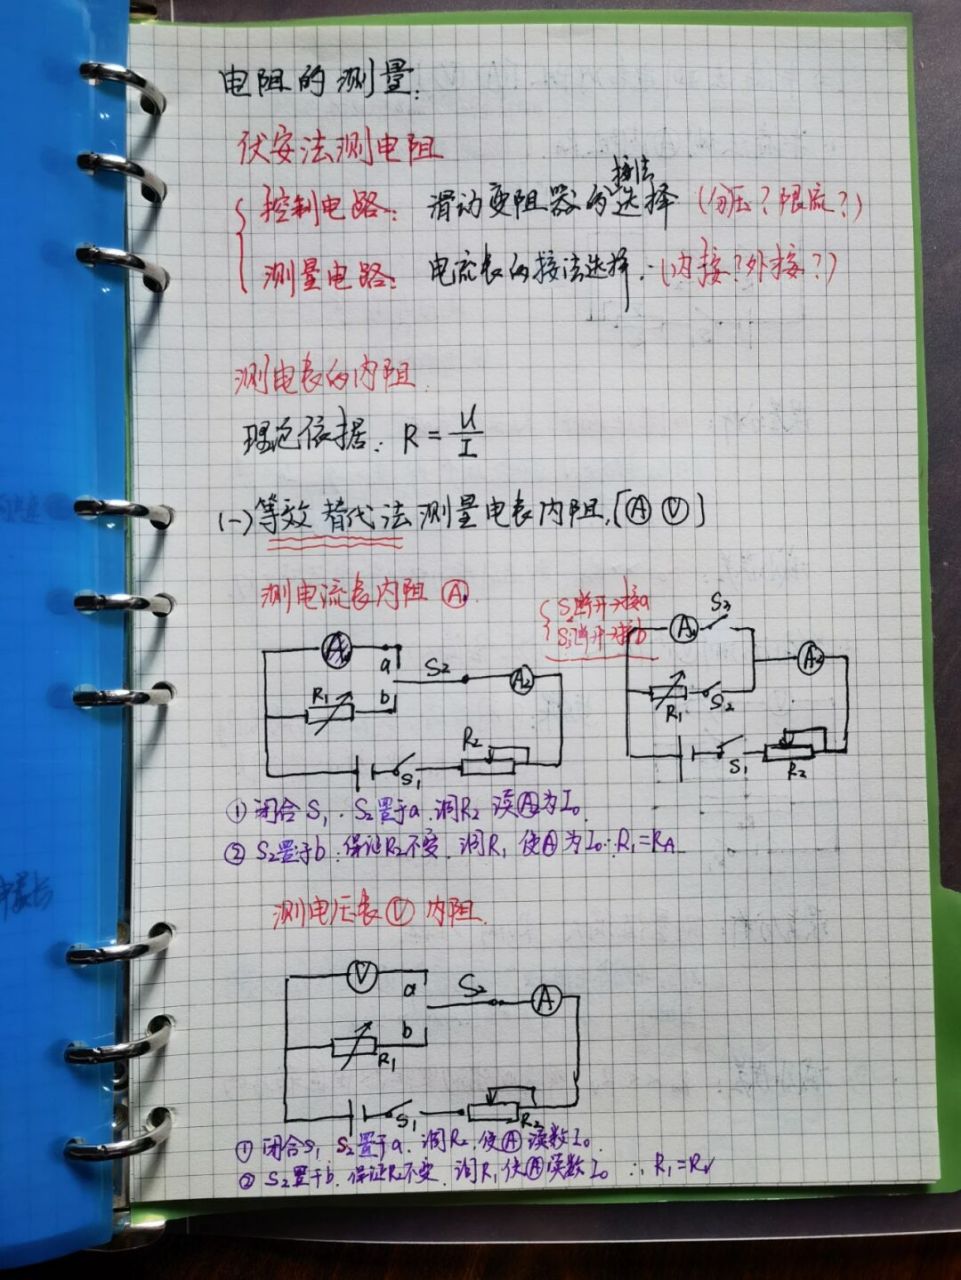 电阻的测量:
伏安法测电阻
控制电路: 滑动变阻器的接法选择 (分压?限流?)
测量电路: 电流表的接法选择.(内接?外接?)
测电表的内阻.
理论依据: R = U/I
(一)等效替代法测量电表内阻.[Ⓐ Ⓥ]
测电流表内阻 Ⓐ.
S₂断开→接a
S₃断开→接b
A₁ a S₂ A₂
R₁ b
S₁ R₂
A₁ S₃ A₂
R₁ S₂
S₁ R₂
① 闭合S₁. S₂置于a.调R₂ 读A₂为I₀.
② S₂置于b.保证R₂不变.调R₁ 使Ⓐ为I₀∴R₁=RA
测电压表Ⓥ内阻.
V a S₂ A
b R₁
S₁ R₂
① 闭合S₁ S₂置于a.调R₂.使Ⓐ读数I₀
② S₂置于b.保证R₂不变.调R₁使Ⓐ读数I₀ ∴R₁=Rv